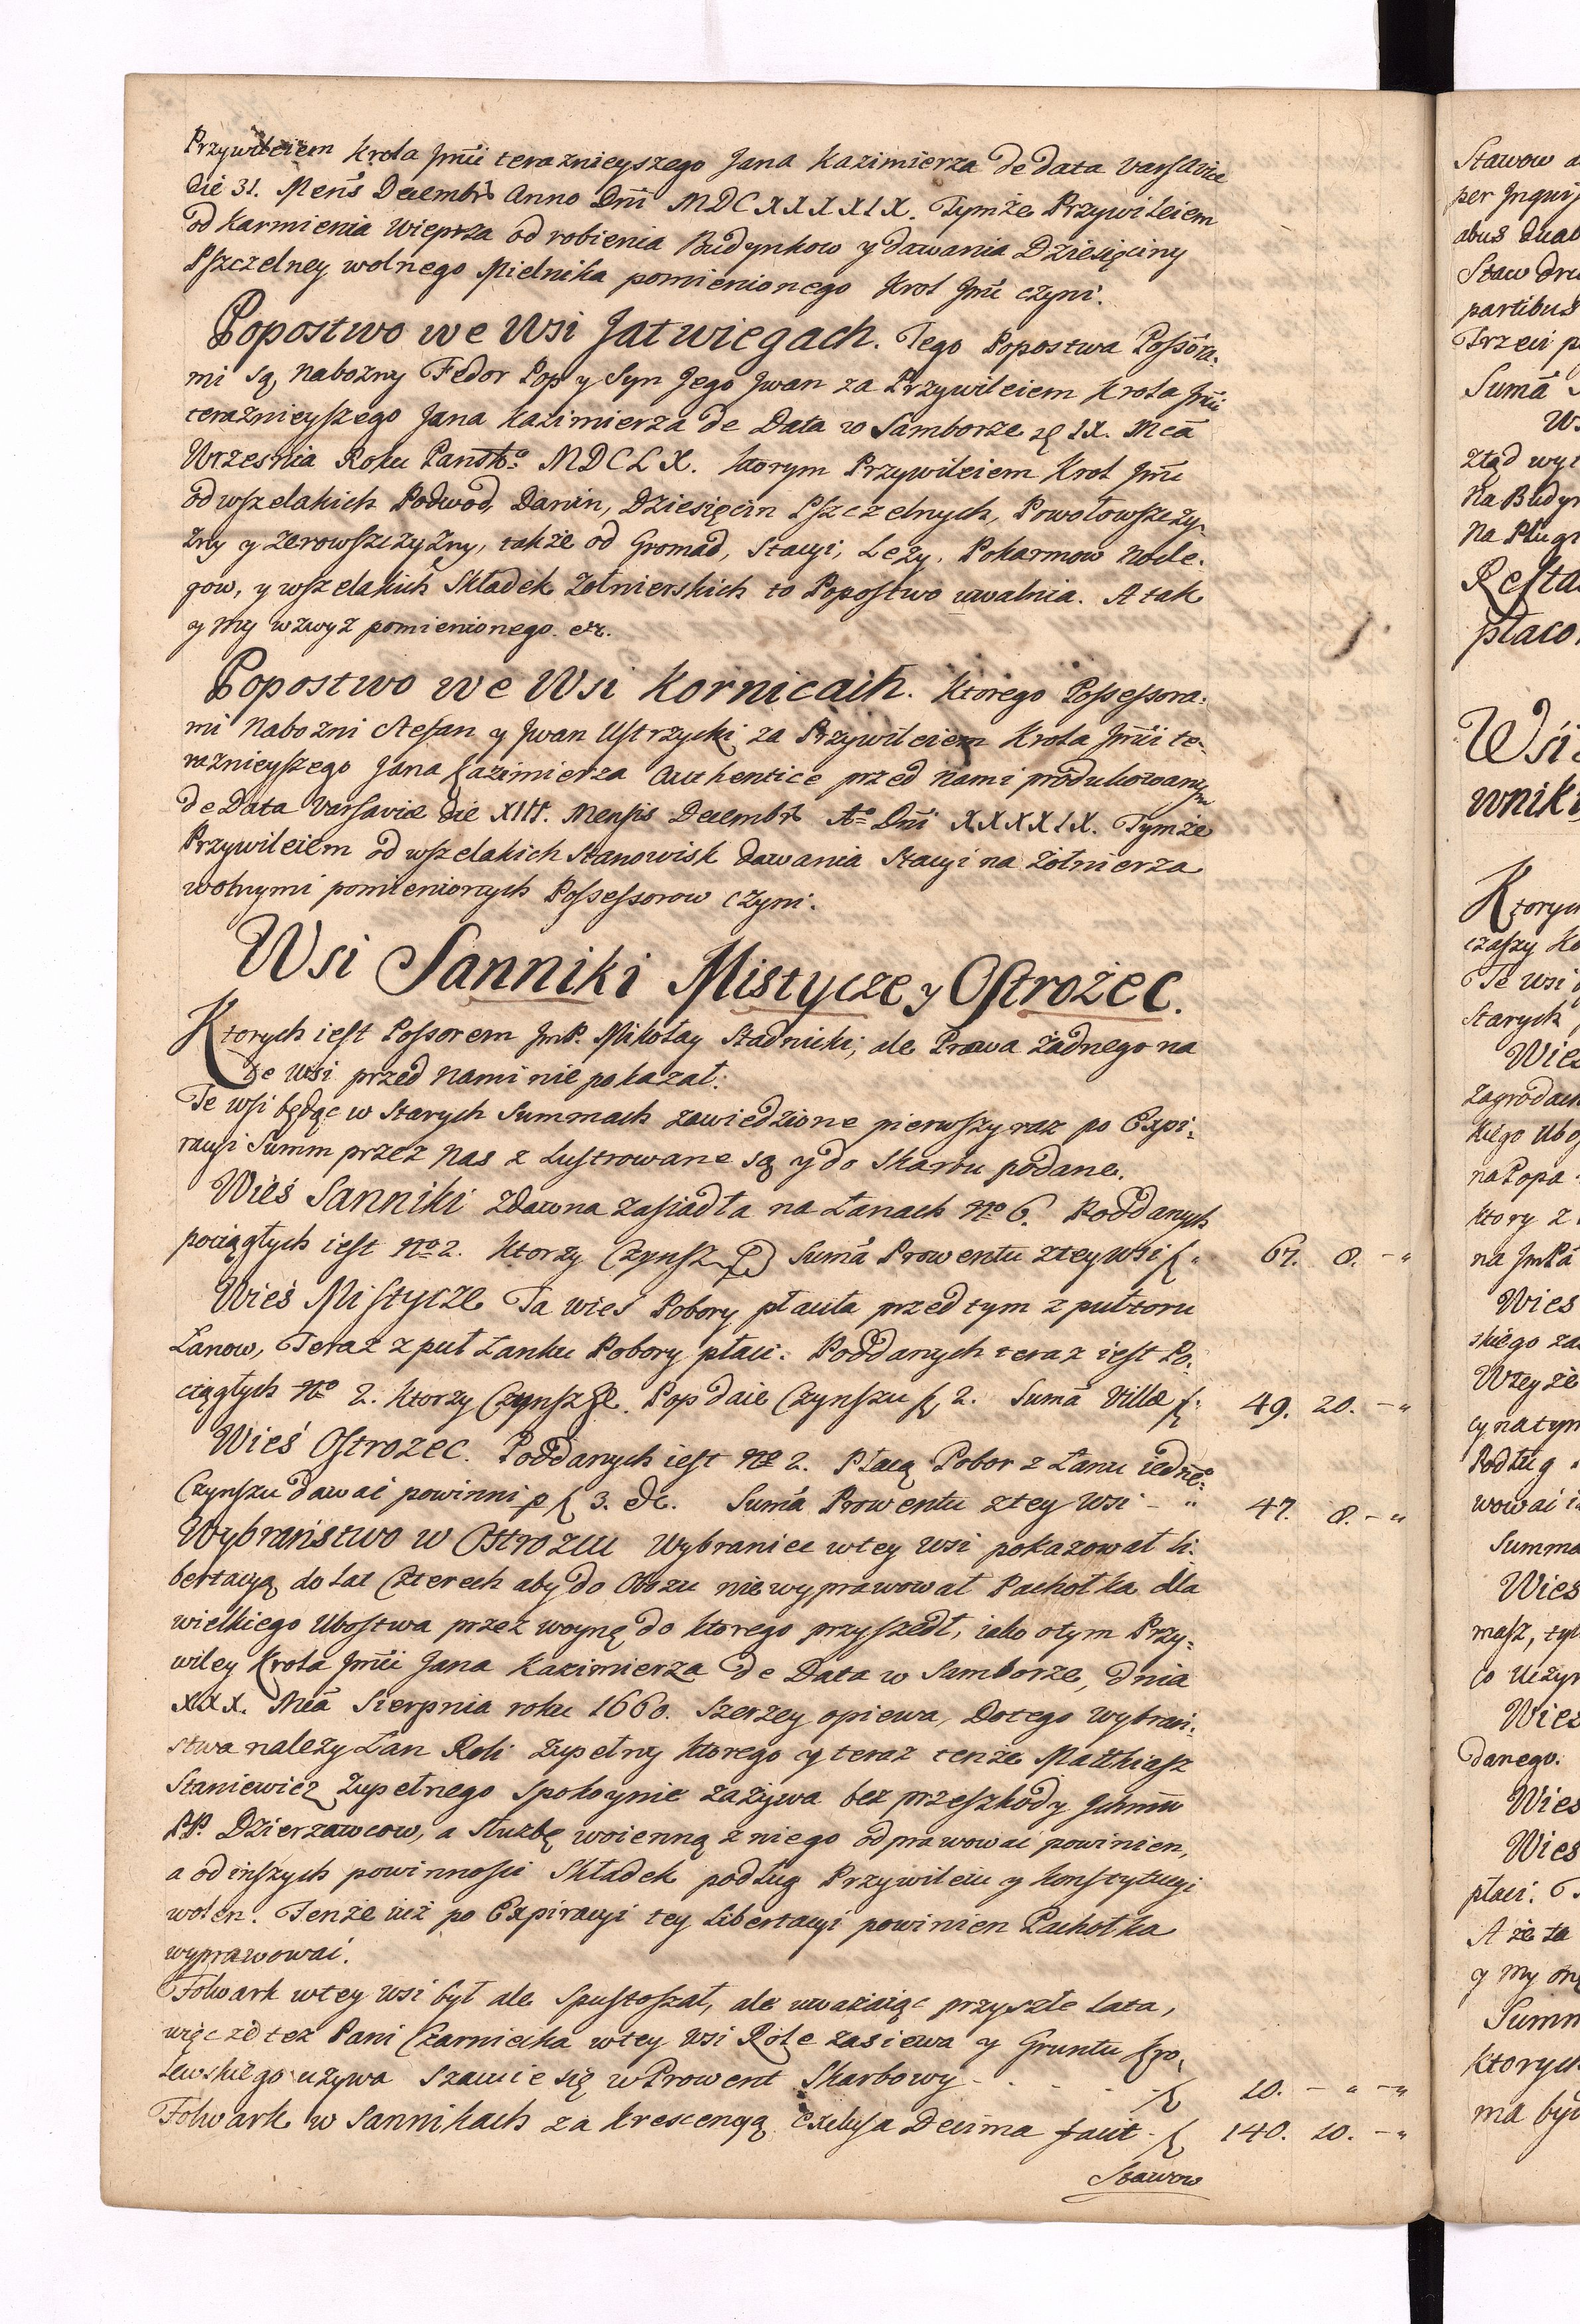 Przywileiem Krola Jmci teraznieyszego Jana Kazimierza de data Varsaviæ
die 31. Mens Decembr Anno Dni MDCXXXXIX. Tymże Przywileiem
od Karmienia Wieprza od robienia Budynkow y dawania Dziesięciny
Pszczelney wolnego Mielnika pomienionego Krol Jmć czyni.
Popostwo we Wsi Jatwiegach. Tego Popostwa Possora-
mi są, nabozny Fedor Pop y Syn Jego Jwan za Przywileiem Krola Jmci
teraznieyszego Jana Kazimierza de Data w Samborze IX. Mca
Wrzesnia Roku Pansko MDCLX. Ktorym Przywileiem Krol Jmć
od wszelakich Podwod, Danin, Dziesięcin Pszczelnych, Powołowszczy-
zny y Zerowszczyzny, także od Gromad, Stacyi, Leży, Pokarmow Nocle-
gow, y wszelakich Składek Żołnierskich to Popostwo uwalnia. A tak
y my wzwyż pomienionego etc.
Popostwo we Wsi Kornicach. Ktorego Possessora-
mi Nabozni Stefan y Jwan Ustrzycki za Przywileiem Krola Jmci te-
raznieyszego Jana Kazimierza Authentice przed nami produkowanym
de Data Varsaviæ die XIII. Mensis Decembr Ao Dni XXXXIX. Tymże
Przywileiem od wszelakich Stanowisk dawania Stacyi na Żołnierza
wolnymi pomienionych Possessorow czyni.
Wsi Sanniki Mistycze y Ostrożec.
Ktorych iest Possorem JmP. Mikołay Stadnicki, ale Prawa żadnego na
te Wsi przed nami nie pokazał.
Te wsi będąc w Starych Summach zawiedzione pierwszy raz po Expi-
racyi Summ przez nas zlustrowane są y do Skarbu podane.
Wieś Sanniki zdawna zasiadła na Łanach No 6. Poddanych
pociągłych iest No 2. Ktorzy Czynsz Suma Prowentu ztey wsi f " 67. 8. - "
Wieś Mistycze Ta wieś Pobory płaciła przedtym z pułtoru
Łanow, Teraz z puł Łanku Pobory płaci. Poddanych teraz iest Po-
ciągłych No 2. Ktorzy Czynsz Pop daie Czynszu f 2. Suma Villæ f. 49. 20. - "
Wieś Ostrozec. Poddanych iest No 2. Płacą Pobor z Łanu iedne-
Czynszu dawać powinni p f 3. etc. Suma Prowentu ztey Wsi - " 47. 8. - "
Wybraństwo w Ostrozcu Wybraniec wtey wsi pokazował li-
bertacyą do Lat Czterech aby do Obozu niewyprawował Pachołka dla
wielkiego Ubostwa przez woynę do ktorego przyszedł, iako otym Przy-
wiley Krola Jmci Jana Kazimierza de Data w Samborze, dnia
XXX. Mca Sierpnia roku 1660. Szerzey opiewa, Dotego Wybrań-
stwa należy Łan Roli zupełny ktorego y teraz tenże Matthiasz
Staniewicz zupełnego spokoynie zażywa bez przeszkody Jchmw
PP. Dzierzawcow, a służbę woienną z niego odprawować powinien,
a od inszych powinności Składek podług Przywileiu y Konstytucyi
wolen. Tenże iuż po Expiracyi tey Libertacyi powinien Pachołka
wyprawować.
Folwark wtey wsi był ale spustoszał, ale uważaiąc przyszłe Lata,
więc że też Pani Czarniecka wtey wsi Rolę zasiewa y Gruntu Kro-
lewskiego używa szacuie się w Prowent Skarbowy - - - - f 20. - " - "
Folwark w Sannikach za krescencyą exclusa Decima facit - f 140. 20. - "
Stawow
Stawow
per
abus
Staw
partibus
Suma
ztąd
na
na Pług

wniki
Ktorych
czaszy
Te wsi
Starych
Wieś
kiego
na Popa
ktory z
Wieś
skiego
Podług
wować
Summa
Wieś
masz,
co
Wieś
danego.
Wieś
Wieś
płaci.
A że ta
y my
Summ
Ktorych
ma